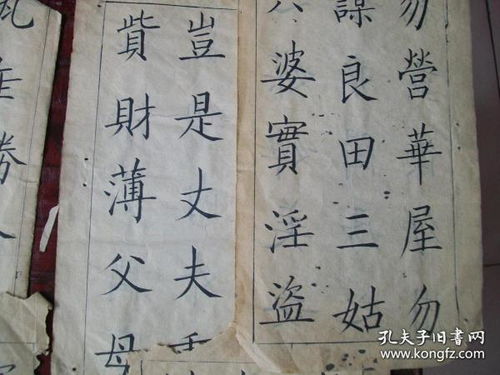 勿營華屋勿
謀良田三姑
婆實淫盜
豈是丈夫
貲財薄父母
孔夫子旧书网
www.kongfz.com